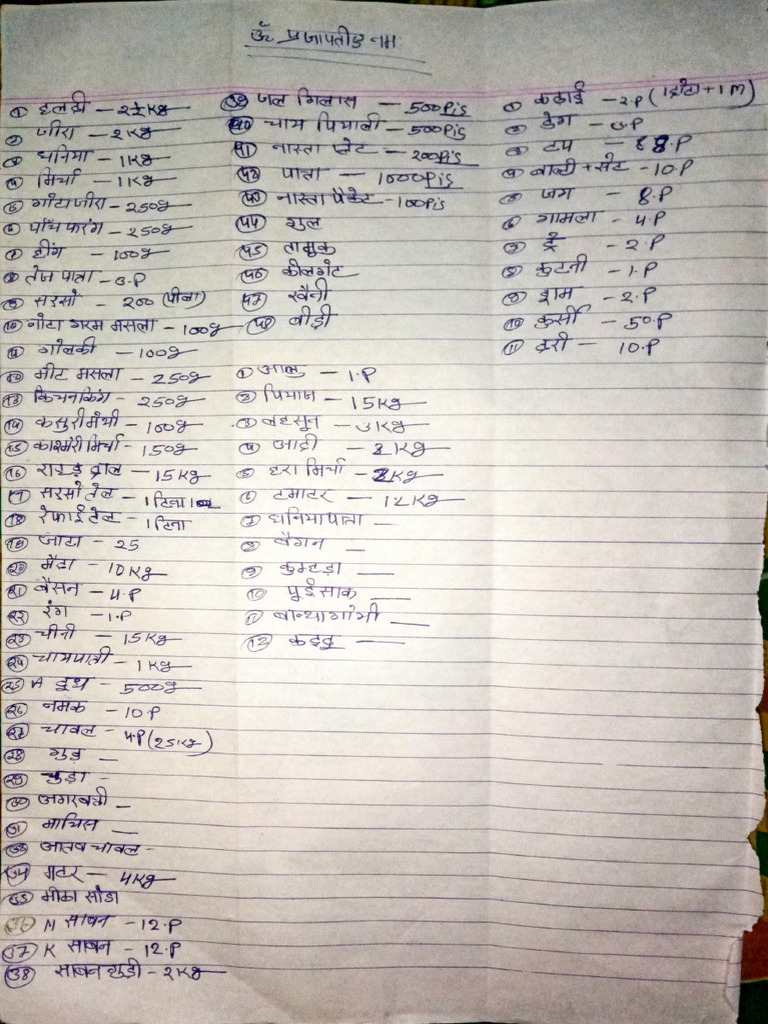 ॐ प्रजापतीऐ नमः
① हलदी — 2½ Kg
② जीरा — 2 Kg
③ धनिया — 1Kg
④ मिर्चा — 1Kg
⑤ गोटा जीरा — 250g
⑥ पाँच फरंग — 250g
⑦ हींग — 100g
⑧ तेज पात्ता — 3.P
⑨ सरसो — 200 (पीला)
⑩ गोटा गरम मसला — 100g
⑪ गोलकी — 100g
⑫ मीट मसला — 250g
⑬ किचनकिंग — 250g
⑭ कसुरी मेथी — 100g
⑮ काश्मेरी मिर्चा — 150g
⑯ राहड़ दाल — 15 Kg
⑰ सरसो तेल — 1 टिना
⑱ रेफाई तेल — 1 टिना
⑲ आटा — 25
⑳ मैदा — 10 Kg
㉑ बेसन — 4.P
㉒ रंग — 1.P
㉓ चीनी — 15 Kg
㉔ चायपात्ती — 1 Kg
㉕ A दुध — 500g
㉖ नमक — 10.P
㉗ चावल — 4.P (25 Kg)
㉘ गुड़ —
㉙ चुड़ा —
㉚ अगरबत्ती —
㉛ माचिस —
㉜ आतव चावल -
㉞ मटर — 4 Kg
㉟ मीठा सोडा
㊱ M साबन — 12.P
㊲ K साबन — 12.P
㊳ साबन गुड़ी — 2 Kg
㊴ जल गिलास — 500 Pis
㊵ चाय पियाली — 500 Pis
㊶ नास्ता प्लेट — 200 Pis
㊷ पात्ता — 1000 Pis
㊸ नास्ता पैकेट — 100 Pis
㊹ गुल
㊺ तामुक
㊻ कोलगेट
㊼ खैनी
㊽ बीड़ी
① आलु — 1.P
② पियाज — 15 Kg
③ लहसून — 3 Kg
④ आदी — 2 Kg
⑤ हरा मिर्चा — 2 Kg
⑥ टमाटर — 12 Kg
⑦ धनियापात्ता —
⑧ बैगन —
⑨ कुम्हड़ा —
⑩ पुई साक —
⑪ बान्धागोभी —
⑫ कद्दु —
① कढ़ाई — 2.P (1 छोटा + 1 M)
② डेग — 3.P
③ टप — 8.P
④ बाल्टी + सेट — 10.P
⑤ जग — 8.P
⑥ गामला — 4.P
⑦ ट्रे — 2.P
⑧ छटनी — 1.P
⑨ ड्राम — 2.P
⑩ कुर्सी — 50.P
⑪ दरी — 10.P